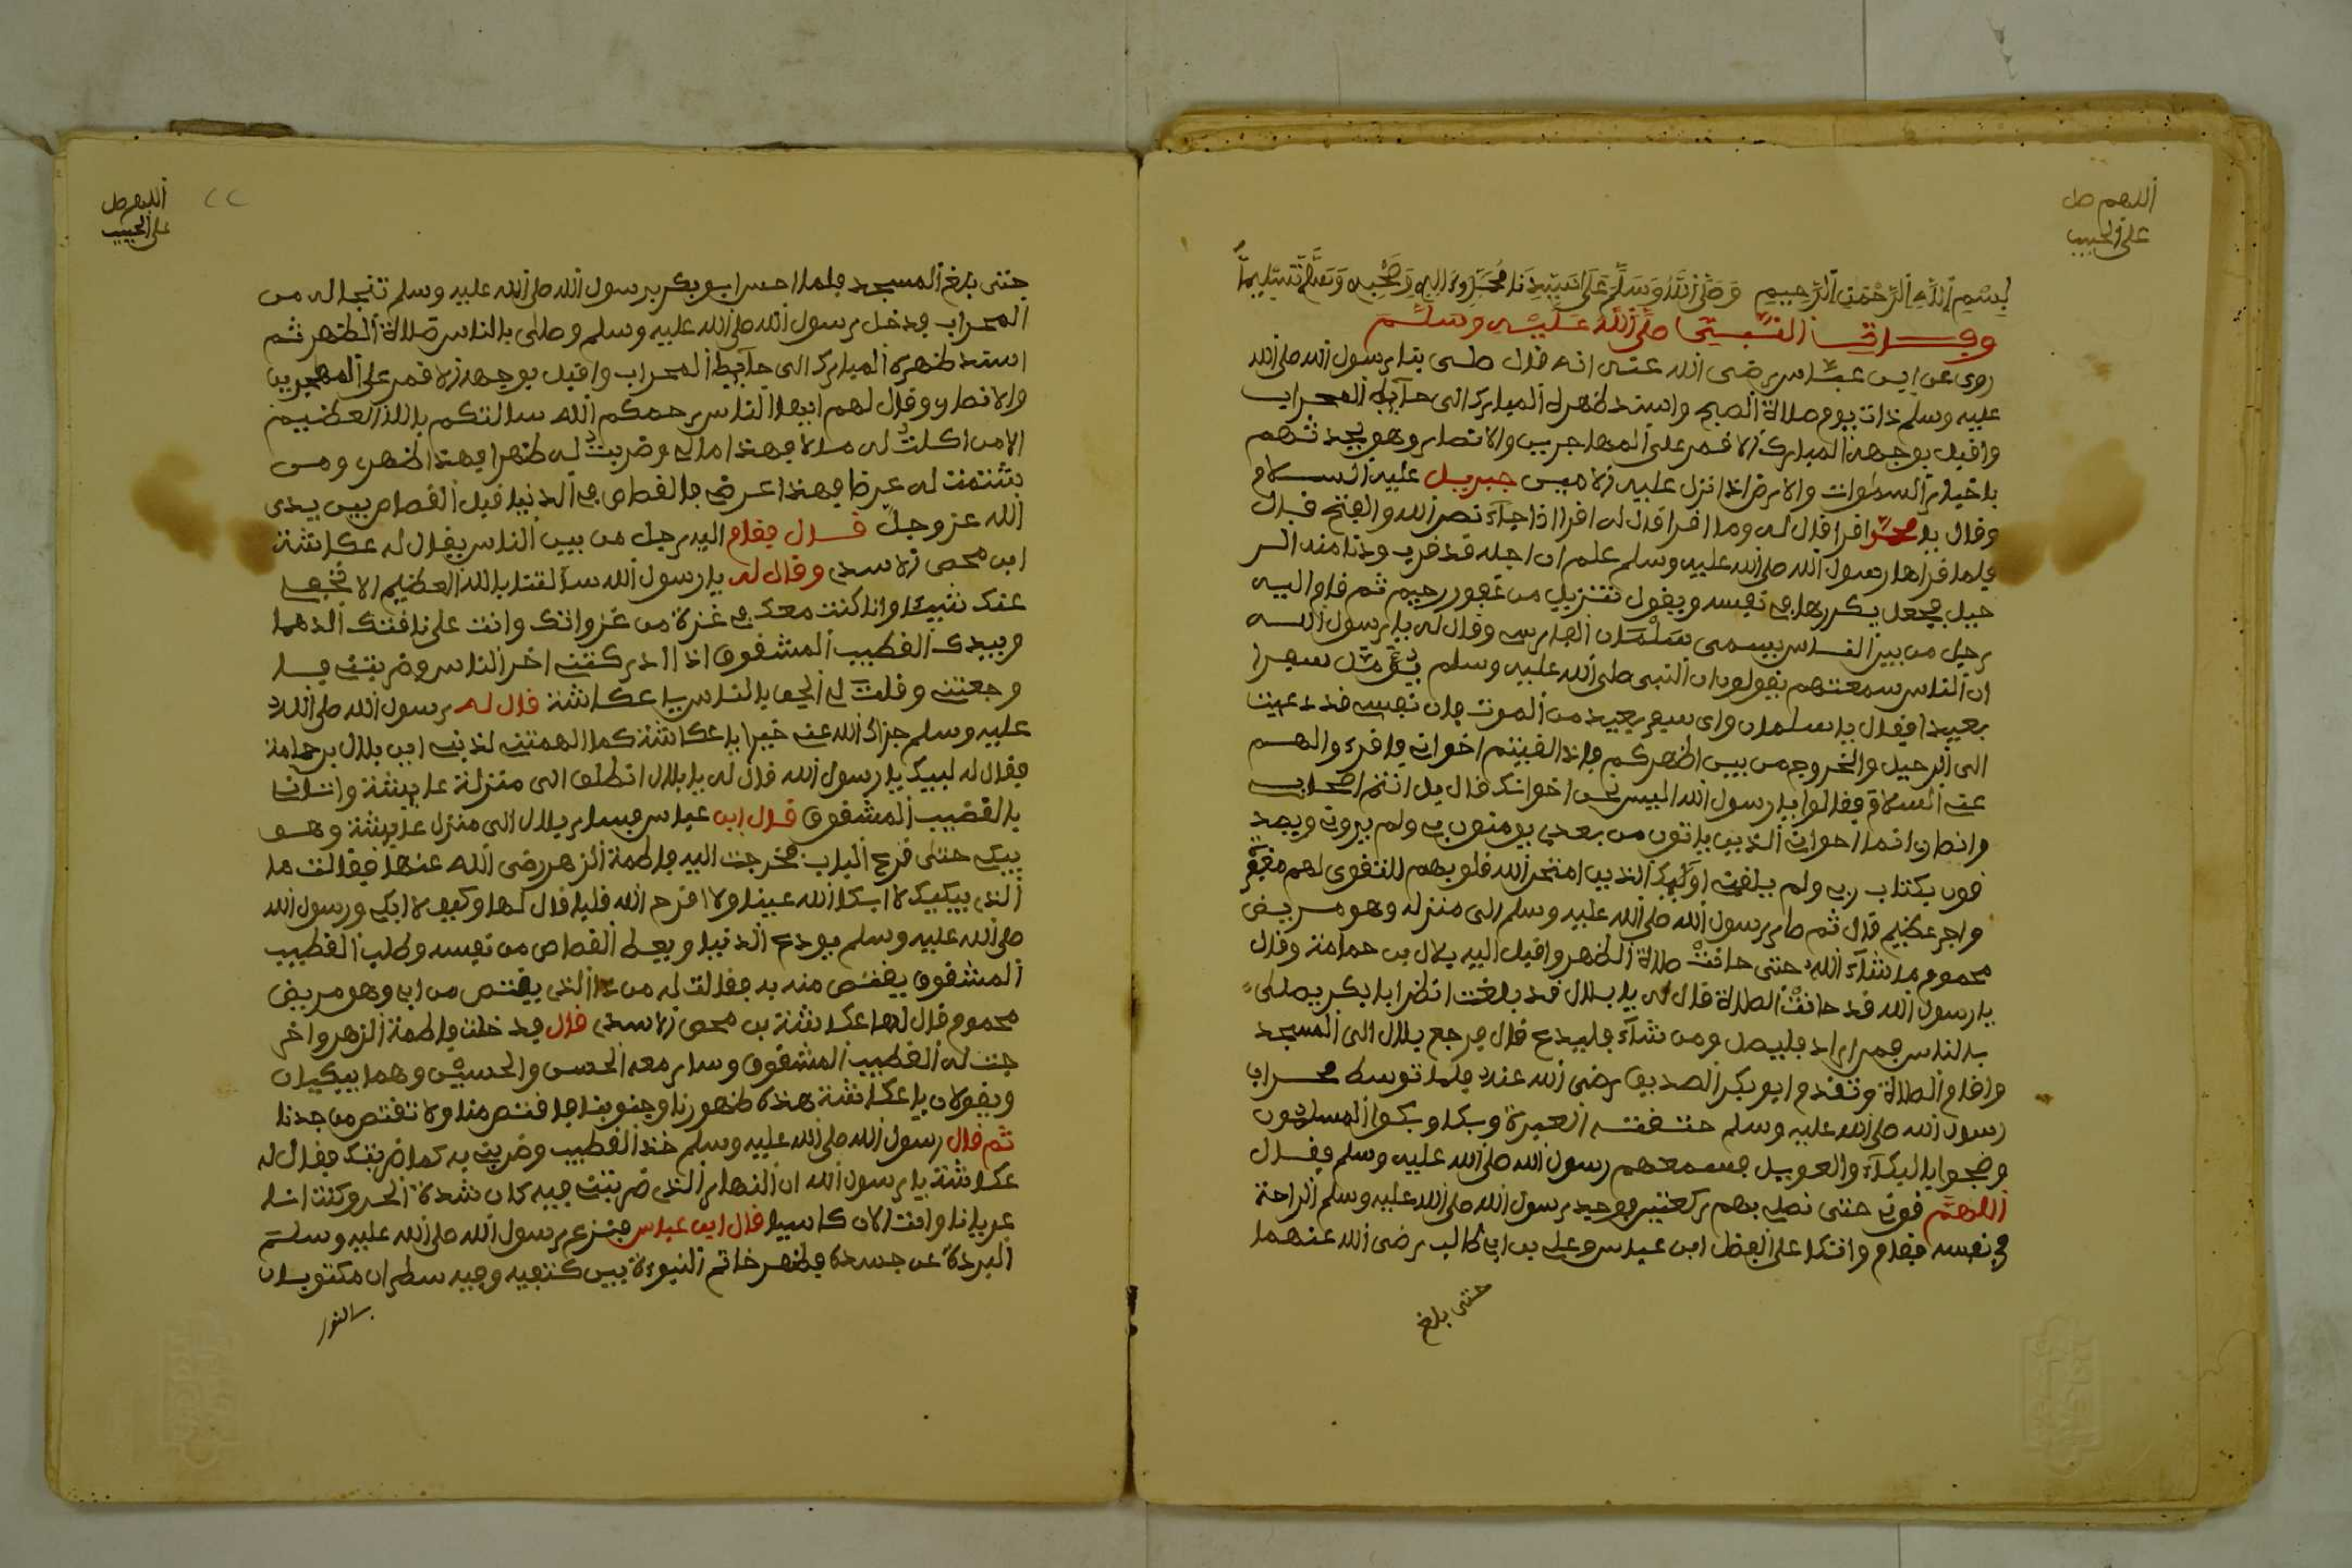 اللهم صل
على الحبيب
بسم الله الرحمن الرحيم وصلى الله وسلم على سيدنا محمد وءاله وصحبه وسلم تسليما
وفات النبي صلى الله عليه وسلم
روى عن ابن عباس رضى الله عنه انه قال صلى بنا رسول الله صلى الله
عليه وسلم ذات يوم صلاة الصبح واسند ظهره المبارك الى حآيط المحراب
واقبل بوجهه المبارك الاقمر على المهاجرين والانصار وهو يحدثهم
باخبار السموات والارض اذا نزل عليه الامين جبريل عليه السلام
وقال يا محمد اقرا قال له وما اقرا قال له اقرا اذا جآء نصر الله والفتح قال
فلما قراها رسول الله صلى الله عليه وسلم علم ان اجله قد قرب ودنا منه الر
حيل فجعل يكررها في نفسه ويقول تنزيل من غفور رحيم ثم قام اليه
رجل من بين الناس يسمى سلمان الفارسي وقال له يا رسول الله
ان الناس سمعتهم يقولون ان النبي صلى الله عليه وسلم سفرا
بعيدا فقال يا سلمان واى سفر بعيد من الموت فان نفسي قد دعيت
الى الرحيل والخروج من بين اظهركم فاذا لقيتم اخواني فاقرءوا لهم
عني السلام فقالوا يا رسول الله اليس نحن اخوانك قال بل انتم اصحابي
وانصار انما اخواني الذين ياتون من بعدي يومنون بي ولم يروني ويصد
قون بكتاب ربي ولم يلقني اوليك الذين امتحن الله قلوبهم للتقوى لهم مغفرة
واجر عظيم قال ثم صار رسول الله صلى الله عليه وسلم الى منزله وهو مريض
محموم ما شآء الله حتى حانت صلاة الظهر واقبل اليه بلال بن حمامة وقال
يا رسول الله قد حانت الصلاة قال له يا بلال قد بلغت انظر ابا بكر يصلى
بالناس فمن اراد فليصل ومن شآء فليدع قال فرجع بلال الى المسجد
واقام الصلاة وتقدم ابو بكر الصديق رضى الله عنه فلما توسط محراب
رسول الله صلى الله عليه وسلم خنقته العبرة وبكا وبكوا المسلمون
وضجوا بالبكآء والعويل فسمعهم رسول الله صلى الله عليه وسلم فقال
اللهم قوني حتى نصلي بهم ركعتين فوجد رسول الله صلى الله عليه وسلم الراحة
في نفسه فقام واتكا على الفضل ابن عباس وعلي بن ابي طالب رضى الله عنهما
حتى بلغ
اللهم صل
على الحبيب
٢٢
حتى بلغ المسجد فلما احس ابو بكر برسول الله صلى الله عليه وسلم تنحا له من
المحراب فدخل رسول الله صلى الله عليه وسلم وصلى بالناس صلاة الظهر ثم
اسند ظهره المبارك الى حآيط المحراب واقبل بوجهه الاقمر على المهجرين
والانصار وقال لهم ايها الناس رحمكم الله سالتكم بالله العظيم
الا من اكلت له مالا فهذا مالي وضربت له ظهرا فهذا ظهري ومن
شتمت له عرضا فهذا عرضي فالقصاص في الدنيا قبل القصاص بين يدى
الله عز وجل قال فقام اليه رجل من بين الناس يقال له عكاشة
ابن محصى الاسدي وقال له يا رسول الله سآلتنا بالله العظيم الا نخفي
عنك شيئا وانا كنت معك في غزة من غزواتك وانت على ناقتك الدهما
وبيدك القطيب المشقوق اذا ادركتني اخر الناس وضربتني به
وجعتني وقلت لي الحق بالناس يا عكاشة قال له رسول الله صلى الله
عليه وسلم جزاك الله عني خيرا يا عكاشة كما الهمتني لذنبي اين بلال بن حمامة
فقال له لبيك يا رسول الله قال له يا بلال انطلق الى منزلة عايشة واتنا
بالقضيب المشقوق قال ابن عباس فسار بلال الى منزل عايشة وهو
يبكي حتى قرع الباب فخرجت اليه فاطمة الزهر رضى الله عنها فقالت ما
الذي يبكيك لا ابكا الله عينا ولا اقرح الله قلبا قال لها وكيف لا ابكي ورسول الله
صلى الله عليه وسلم يودع الدنيا ويعط القصاص من نفسه وطلب القطيب
المشقوق يقتص منه به فقالت له من ذا الذي يقتص من ابي وهو مريض
محموم قال لها عكاشة بن محصى الاسدي قال فدخلت فاطمة الزهر واخر
جت له القطيب المشقوق وسار معه الحسن والحسين وهما يبكيان
ويقولان يا عكاشة هذه ظهورنا وجنوبنا فاقتص منا ولا تقتص من جدنا
ثم قال رسول الله صلى الله عليه وسلم خذ القطيب وضربني به كما ضربتك فقال له
عكاشة يا رسول الله ان النهار الذي ضربتني فيه كان شدة الحر وكنت انا
عريانا وانت الان كاسيا قال ابن عباس فنزع رسول الله صلى الله عليه وسلم
البردة عن جسده فظهر خاتم النبوءة بين كتفيه وفيه سطران مكتوبان
بالنور